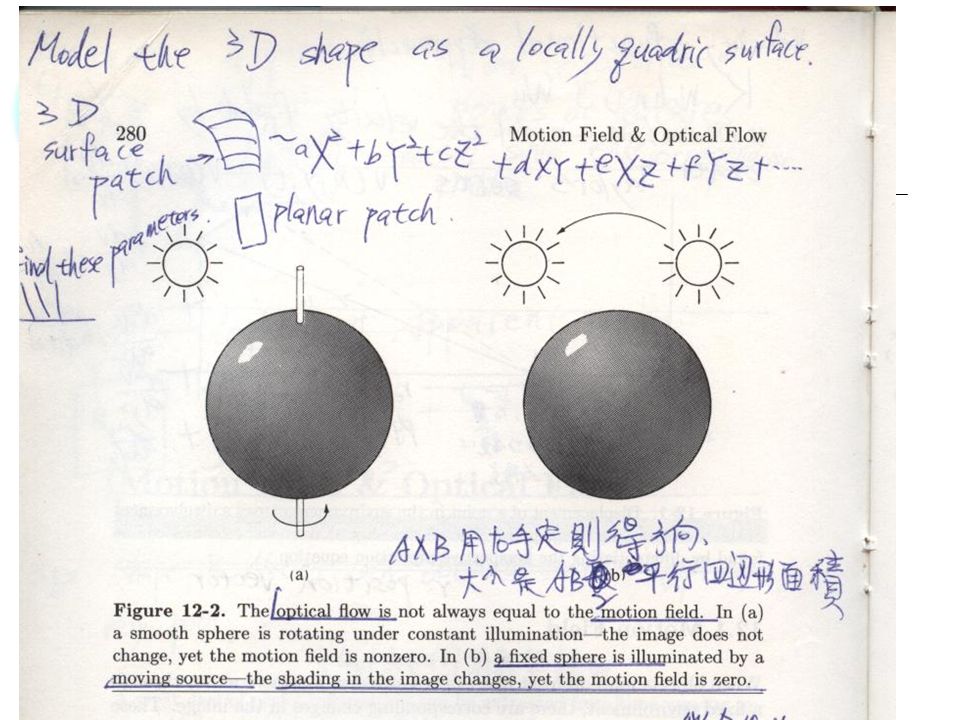 Model the 3D shape as a locally quadric surface.
3D
surface
patch →
280
Motion Field & Optical Flow
~aX²+bY²+cZ²
+dXY+eXZ+eYZ+....
planar patch.
find these parameters.
AXB 用右手定則得方向、
大小是AB 平行四边形面積
(a)
(b)
Figure 12-2. The optical flow is not always equal to the motion field. In (a)
a smooth sphere is rotating under constant illumination—the image does not
change, yet the motion field is nonzero. In (b) a fixed sphere is illuminated by a
moving source—the shading in the image changes, yet the motion field is zero.